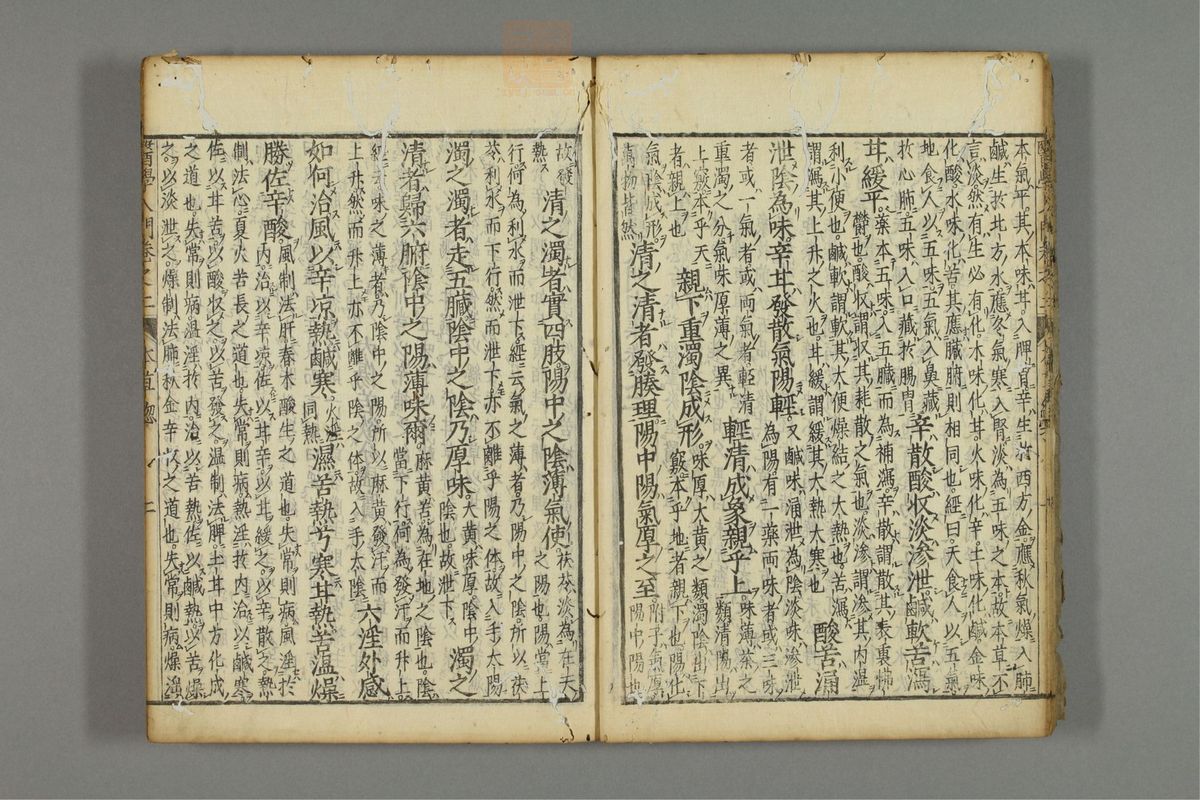 本氣平其本味甘入脾胃辛生於西方金應秋氣燥入肺
鹹生於北方水應冬氣寒入腎淡為五味之本故本草不
言淡然有生必有化木味化甘火味化辛土味化鹹金味
化酸水味化苦其應臟腑則相同也經曰天食人以五氣
地食人以五味五氣入鼻藏
於心肺五味入口藏於腸胃
辛散酸收淡滲泄鹹軟苦瀉
甘緩平
藥本五味入五臟而為補瀉辛散謂散其表裏怫
鬱也酸收謂收其耗散之氣也淡滲謂滲其內濕
利小便也鹹軟謂軟其大便燥結之大熱也苦瀉
謂瀉其上升之火也甘緩謂緩其大熱大寒也
酸苦涌
泄陰為味辛甘發散氣陽輕
又鹹味涌泄為陰淡味滲泄
為陽有一藥兩味者或三味
者或一氣者或兩氣者
輕清成象親乎上
輕清
重濁之分氣味厚薄之異
味薄茶之
類清陽出
上竅本乎天
者親上也
親下重濁陰成形
味厚大黃之類濁陰出下
竅本乎地者親下也陽化
氣陰成形
萬物皆然
清之清者發腠理陽中陽氣厚之至
附子氣厚
陽中陽也
故發
熱
清之濁者實四肢陽中之陰薄氣使
茯苓淡為在天
之陽也陽當上
行何為利水而泄下經云氣之薄者乃陽中之陰所以茯
苓利水而下行然而泄下亦不離乎陽之體故入手太陽
濁之濁者走五臟陰中之陰乃厚味
大黃味厚陰中
陰也故泄下
濁之
清者歸六腑陰中之陽薄味爾
麻黃苦為在地之陰也陰
當下行何為發汗而升上
經云味之薄者乃陰中之陽所以麻黃發汗而
上升然而升上亦不離乎陰之體故入手太陰
六淫外感
如何治風以辛涼熱鹹寒
火淫
同熱
濕苦熱兮寒甘熱苦溫燥
勝佐辛酸
風制法肝春木酸生之道也失常則病風淫於
內治以辛涼佐以甘辛以甘緩之以辛散之熱
制法心夏火苦長之道也失常則病熱淫於內治以鹹寒
佐以甘苦以酸收之以苦發之溫制法脾土甘中方化成
之道也失常則病溫淫於內治以苦熱佐以鹹熱以苦燥
之以淡泄之燥制法肺秋金辛收之道也失常則病燥淫
醫學入門卷之二 本草總 二